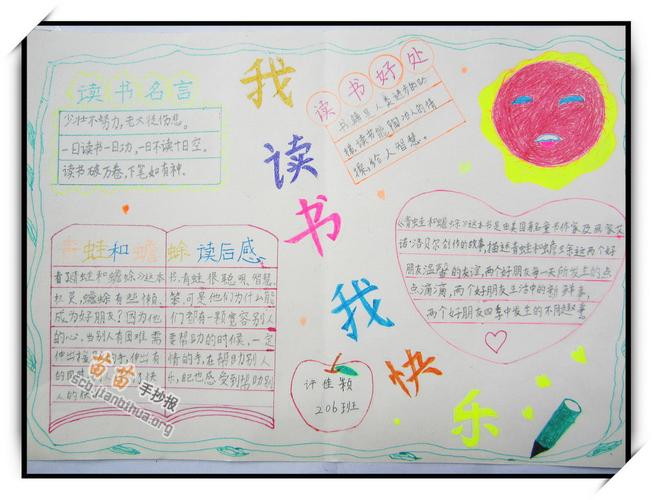 我读书我快乐
读书名言
少壮不努力,老大徒伤悲。
一日读书一日功,一日不读十日空。
读书破万卷,下笔如有神。
读书好处
书籍是人类进步的阶
梯,读书能陶冶人的情
操,给人智慧。
青蛙和蟾蜍读后感
书,青蛙很聪明、智慧、
成为好朋友?因为他
们都有一颗宽容别人
的心,当别人有困难需
要帮助的时候,一定
情的手,在帮助别人
乐,自己也感受到帮助别
《青蛙和蟾蜍》这本书是由美国著名童书作家
诺·洛贝尔创作的故事,描述青蛙和蟾蜍这两个好
朋友温馨的友谊,两个好朋友每一天所发生的点
点滴滴,两个好朋友生活中的新鲜事,
两个好朋友四季中发生的不同趣事。
许佳颖
206班
苗苗手抄报
scb.jianbihua.org